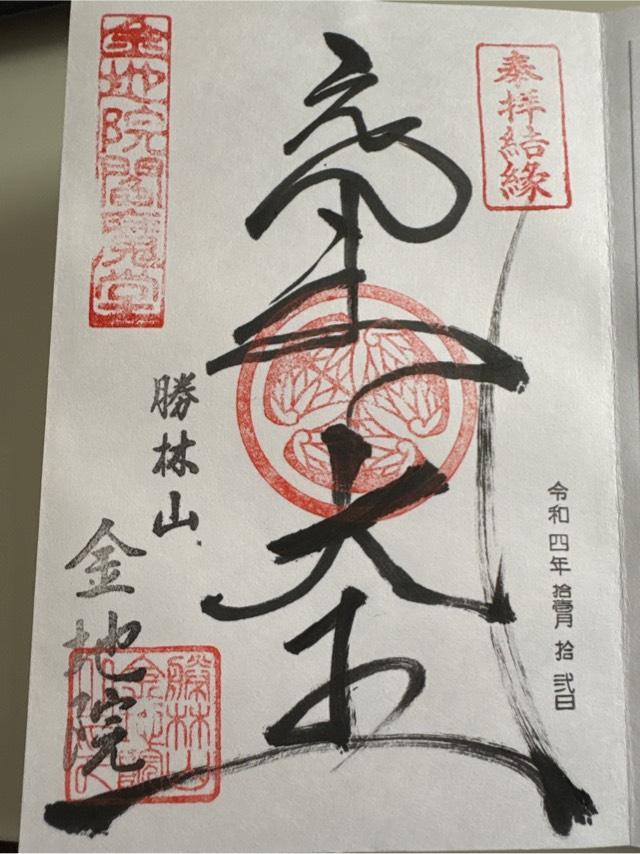 奉拝結縁
令和四年 拾壹月 拾弐日
大王
勝林山
金地院
金地院閻魔堂
勝林山
金地院